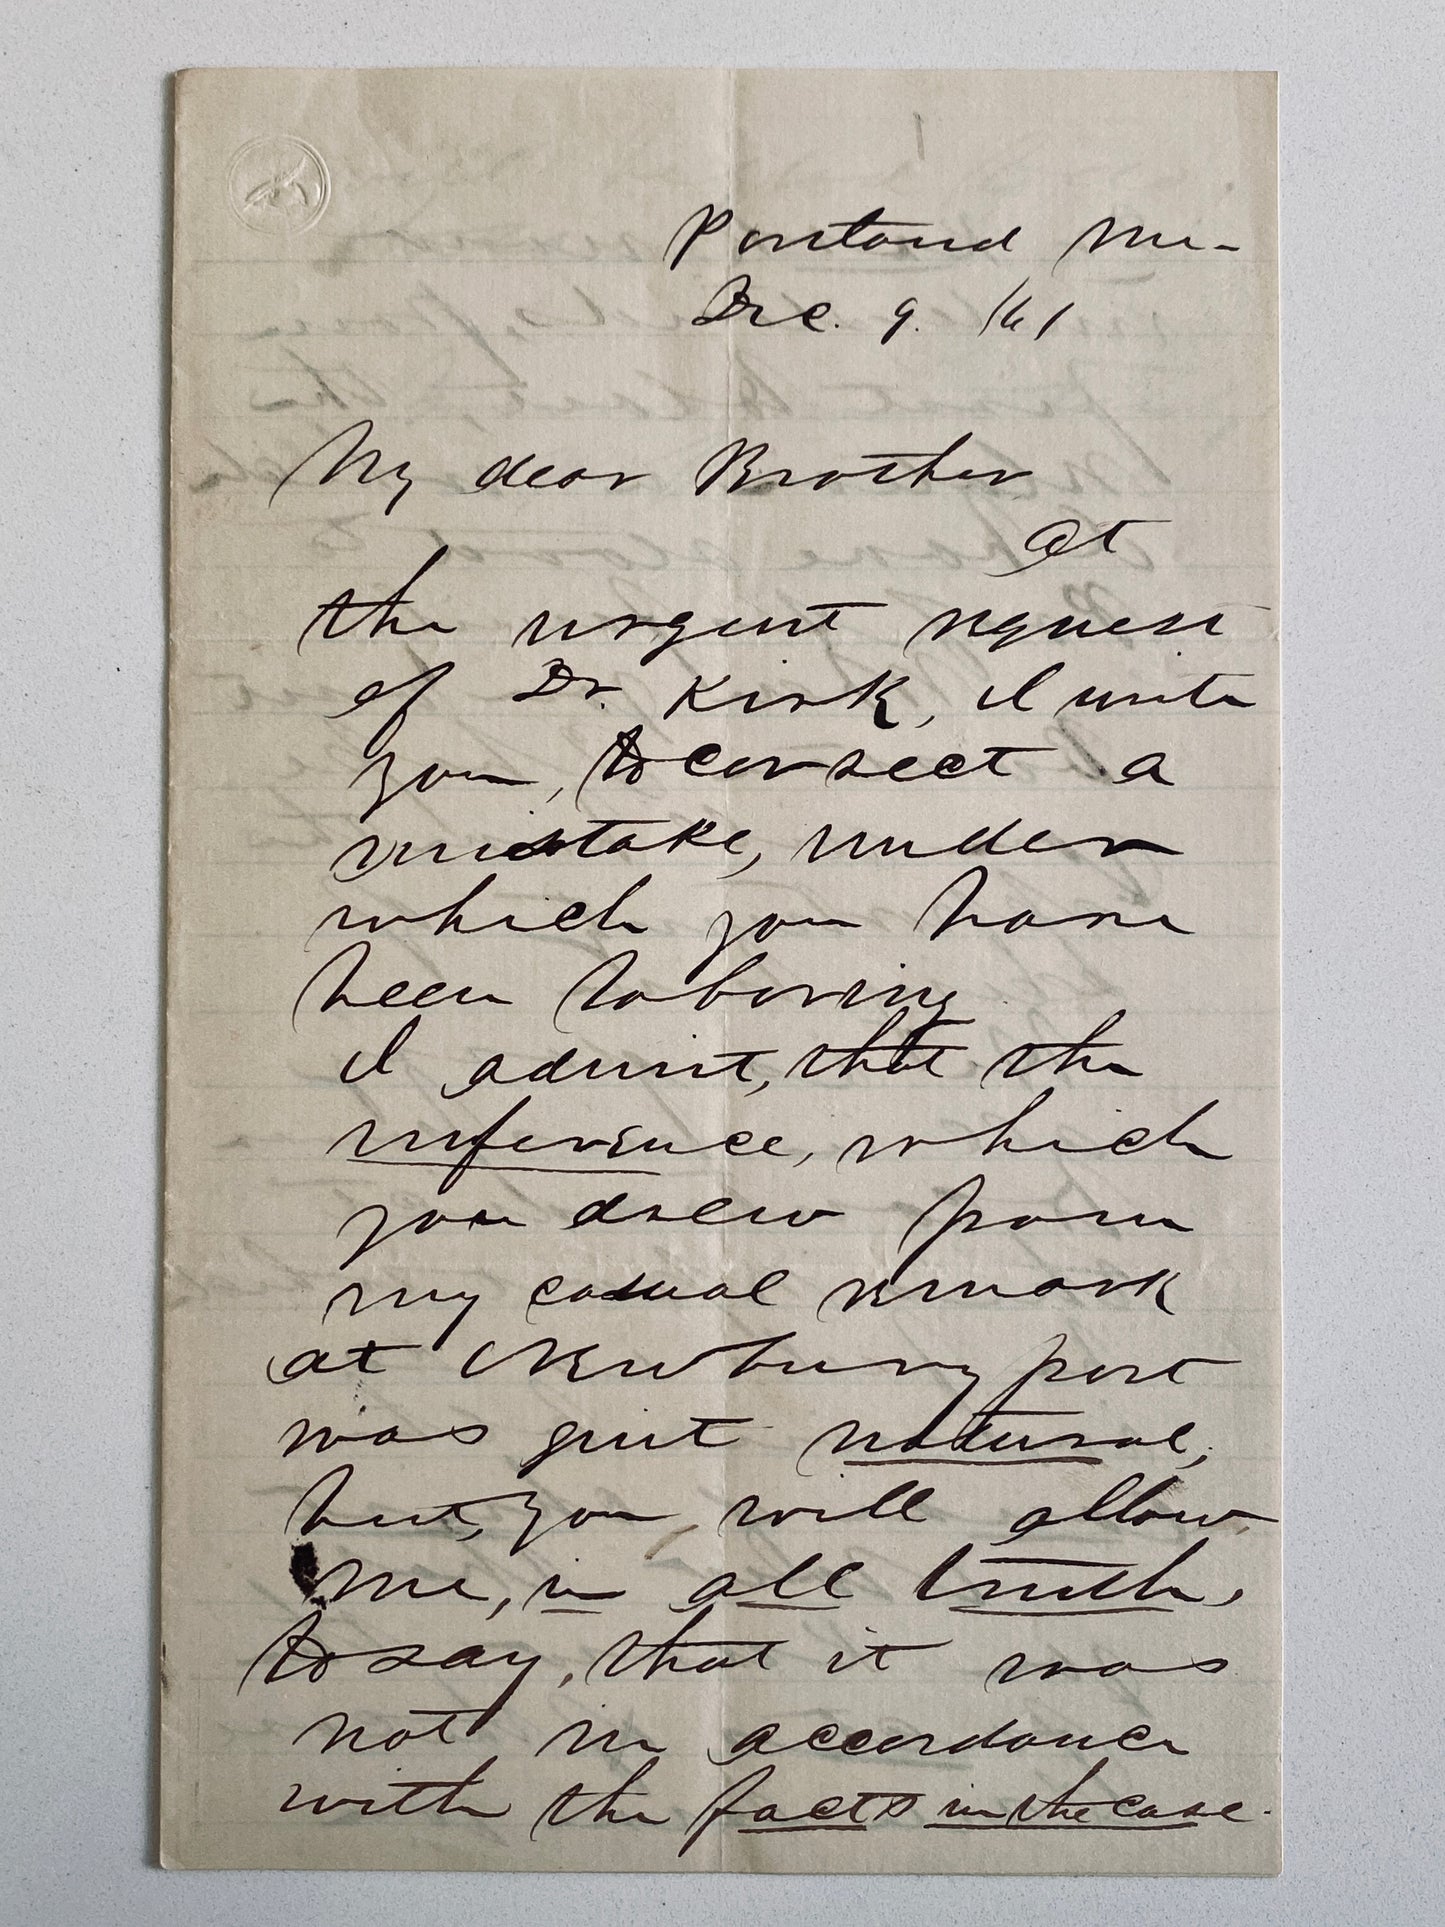 Portland Me-
Dec. 9. /61
My dear Brother
At
the urgent request
of Dr. Kirk, I write
you, to correct a
mistake, under
which you have
been laboring
I admit, that the
inference, which
you drew from
my casual remark
at Newburyport
was quit natural,
but, you, will allow
me, in all truth,
to say, that it was
not in accordance
with the facts in the case.